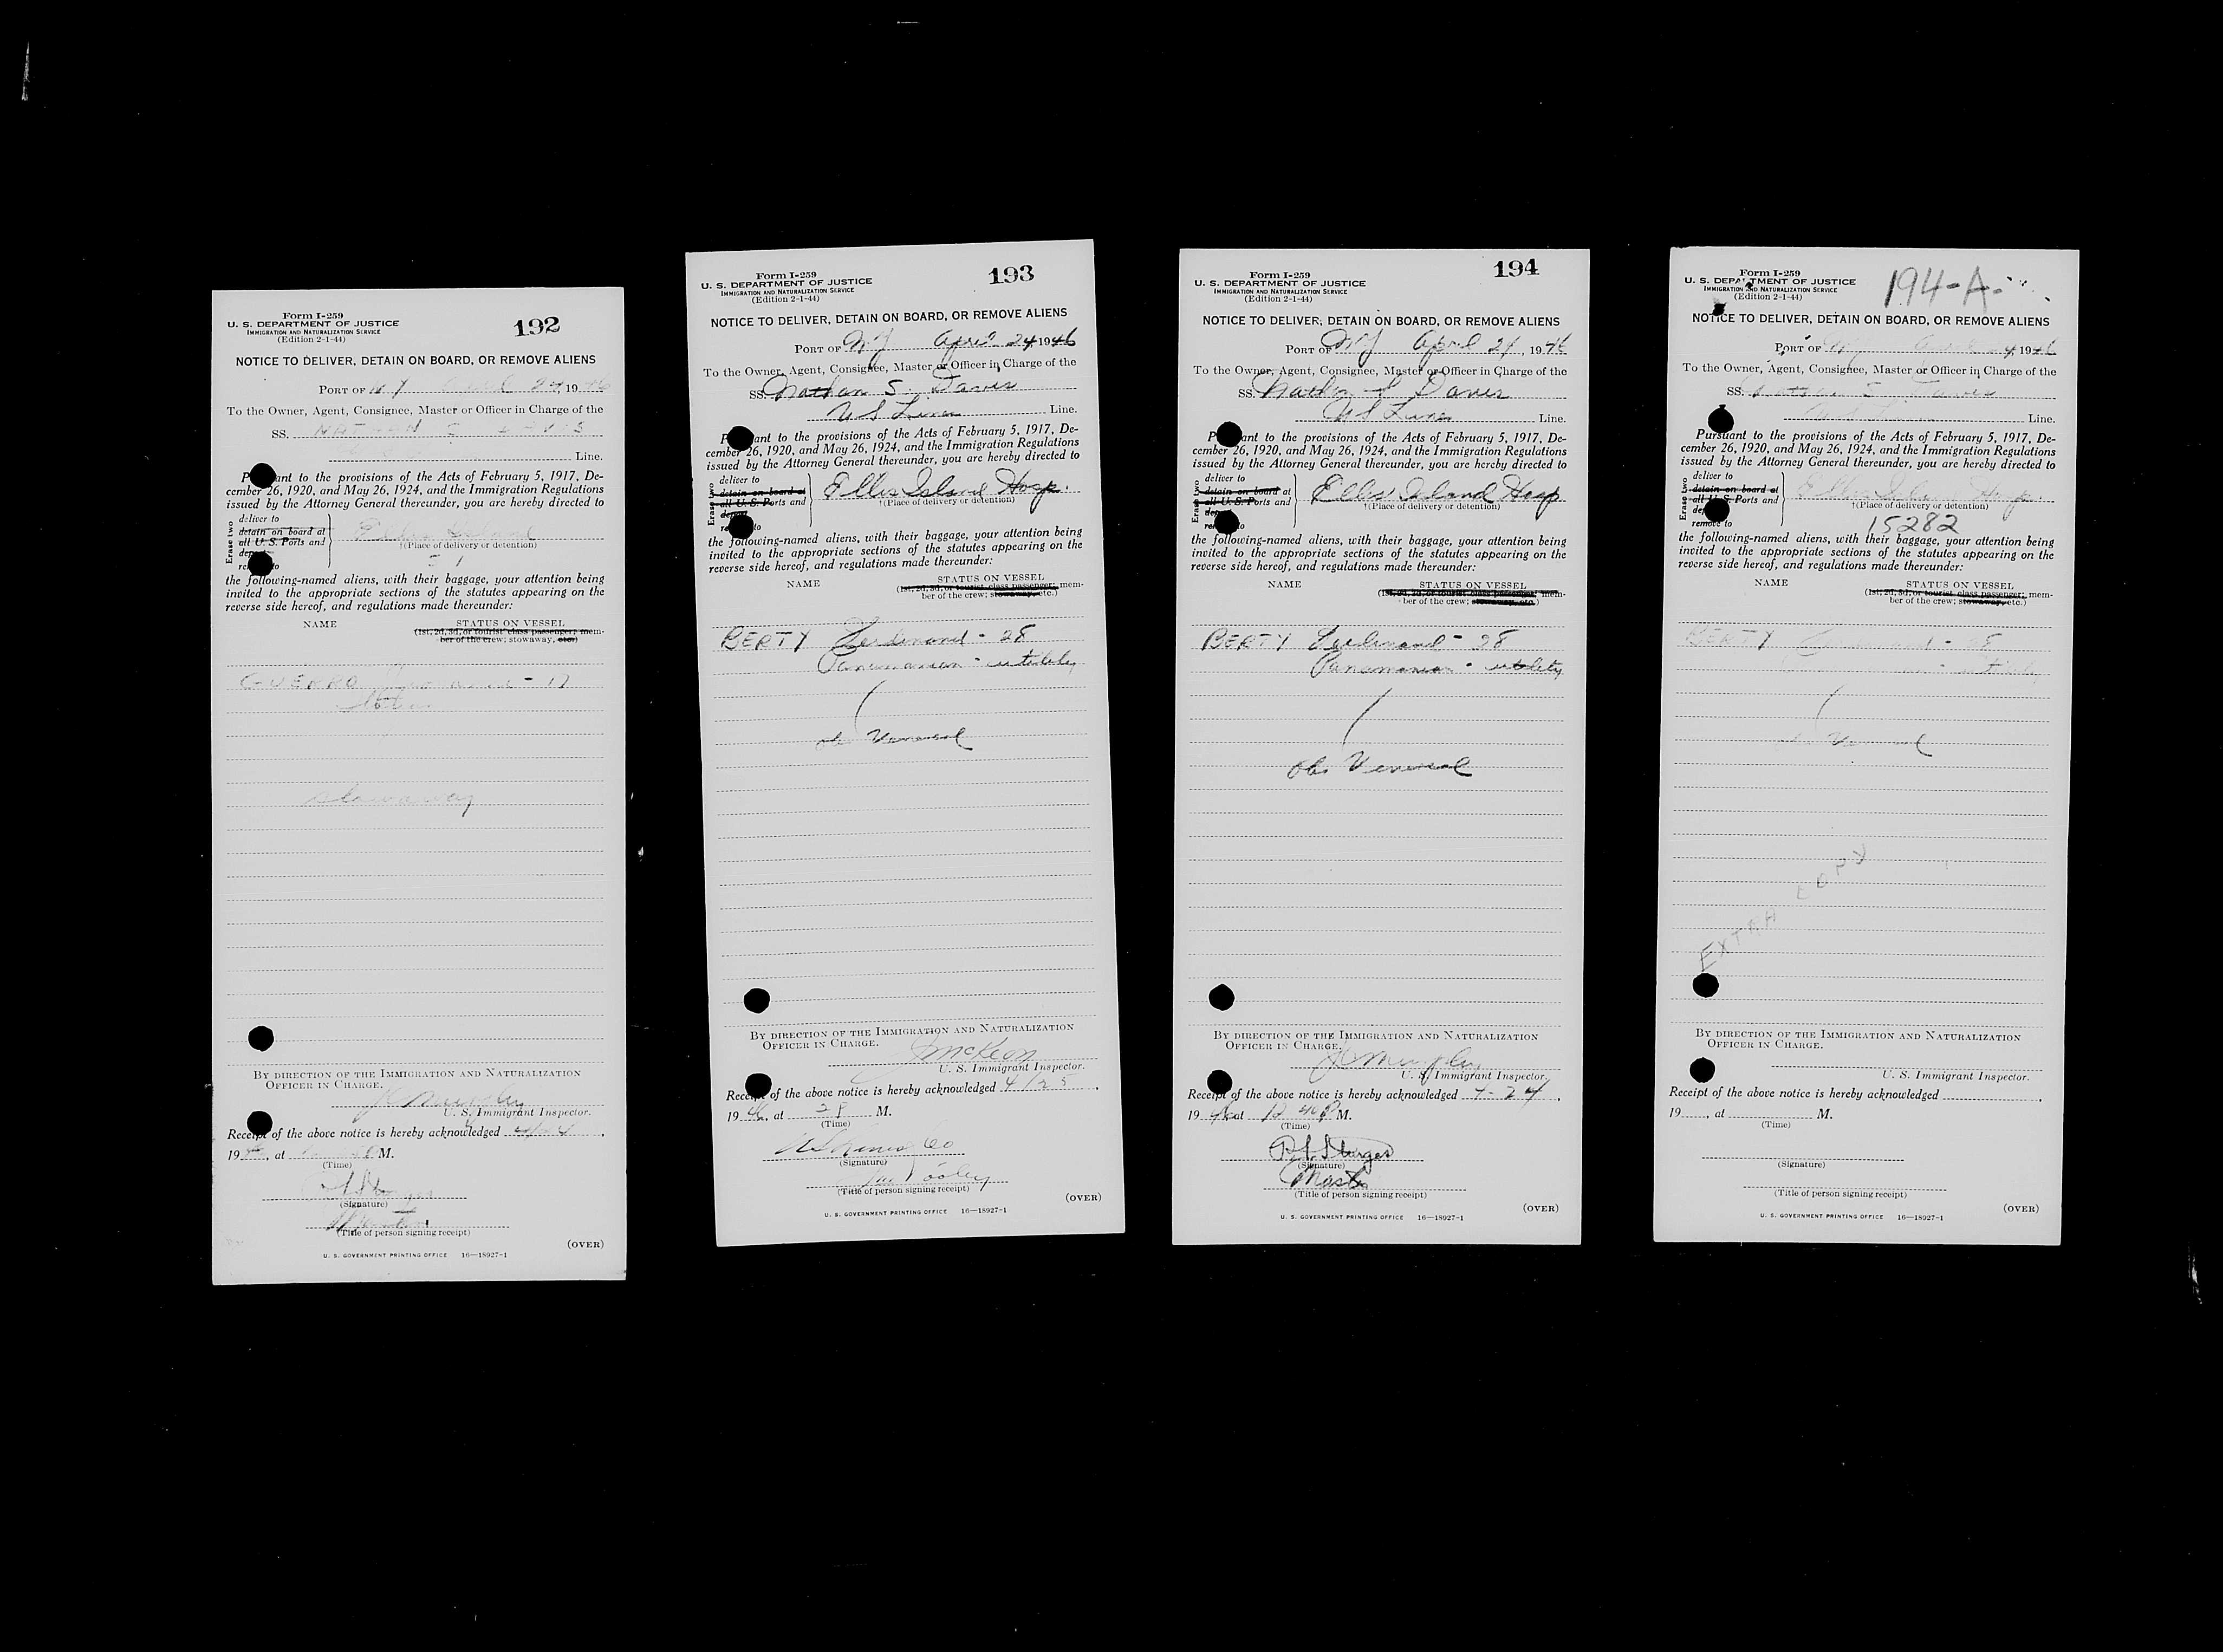 Form I-259
U. S. DEPARTMENT OF JUSTICE
IMMIGRATION AND NATURALIZATION SERVICE
(Edition 2-1-44)
192
NOTICE TO DELIVER, DETAIN ON BOARD, OR REMOVE ALIENS
PORT OF N Y April 24, 1946
To the Owner, Agent, Consignee, Master or Officer in Charge of the
SS. NATHAN S DAVIS
Line.
P ant to the provisions of the Acts of February 5, 1917, De-
cember 26, 1920, and May 26, 1924, and the Immigration Regulations
issued by the Attorney General thereunder, you are hereby directed to
Erase two
deliver to
detain on board at
all U. S. Ports and
Ellis Island
†(Place of delivery or detention)
to
the following-named aliens, with their baggage, your attention being
invited to the appropriate sections of the statutes appearing on the
reverse side hereof, and regulations made thereunder:
NAME STATUS ON VESSEL
(1st, 2d, 3d, or tourist class passenger; mem-
ber of the crew; stowaway, etc.)
GUERRO - 17
Stowaway
BY DIRECTION OF THE IMMIGRATION AND NATURALIZATION
OFFICER IN CHARGE.
U. S. Immigrant Inspector.
Receipt of the above notice is hereby acknowledged 4/24,
19 46, at M.
(Time)
(Signature)
(Title of person signing receipt)
(OVER)
U. S. GOVERNMENT PRINTING OFFICE 16—18927-1
Form I-259
U. S. DEPARTMENT OF JUSTICE
IMMIGRATION AND NATURALIZATION SERVICE
(Edition 2-1-44)
193
NOTICE TO DELIVER, DETAIN ON BOARD, OR REMOVE ALIENS
PORT OF NY April 24 1946
To the Owner, Agent, Consignee, Master or Officer in Charge of the
SS. Nathan S. Davis
US Lines Line.
P ant to the provisions of the Acts of February 5, 1917, De-
cember 26, 1920, and May 26, 1924, and the Immigration Regulations
issued by the Attorney General thereunder, you are hereby directed to
Erase two
deliver to
detain on board at
all U. S. Ports and
Ellis Island Hosp.
†(Place of delivery or detention)
to
the following-named aliens, with their baggage, your attention being
invited to the appropriate sections of the statutes appearing on the
reverse side hereof, and regulations made thereunder:
NAME STATUS ON VESSEL
(1st, 2d, 3d, or tourist class passenger; mem-
ber of the crew; stowaway, etc.)
BERTY Ferdinand - 28
Panamanian - utility
obs Venereal
BY DIRECTION OF THE IMMIGRATION AND NATURALIZATION
OFFICER IN CHARGE.
McKeon
U. S. Immigrant Inspector.
Receipt of the above notice is hereby acknowledged 4/25,
19 46, at 2 P M.
(Time)
US Lines Co
(Signature)
(Title of person signing receipt)
(OVER)
U. S. GOVERNMENT PRINTING OFFICE 16—18927-1
Form I-259
U. S. DEPARTMENT OF JUSTICE
IMMIGRATION AND NATURALIZATION SERVICE
(Edition 2-1-44)
194
NOTICE TO DELIVER, DETAIN ON BOARD, OR REMOVE ALIENS
PORT OF NY April 24, 1946
To the Owner, Agent, Consignee, Master or Officer in Charge of the
SS. Nathan S Davis
US Lines Line.
P ant to the provisions of the Acts of February 5, 1917, De-
cember 26, 1920, and May 26, 1924, and the Immigration Regulations
issued by the Attorney General thereunder, you are hereby directed to
Erase two
deliver to
detain on board at
all U. S. Ports and
Ellis Island Hosp
†(Place of delivery or detention)
to
the following-named aliens, with their baggage, your attention being
invited to the appropriate sections of the statutes appearing on the
reverse side hereof, and regulations made thereunder:
NAME STATUS ON VESSEL
(1st, 2d, 3d, or tourist class passenger; mem-
ber of the crew; stowaway, etc.)
BERTY Ferdinand - 28
Panamanian - utility
Obs Venereal
BY DIRECTION OF THE IMMIGRATION AND NATURALIZATION
OFFICER IN CHARGE.
U. S. Immigrant Inspector.
Receipt of the above notice is hereby acknowledged 4-24,
19 46 at 12 40 P M.
(Time)
(Signature)
Master
(Title of person signing receipt)
(OVER)
U. S. GOVERNMENT PRINTING OFFICE 16—18927-1
Form I-259
U. S. DEPARTMENT OF JUSTICE
IMMIGRATION AND NATURALIZATION SERVICE
(Edition 2-1-44)
194-A-
NOTICE TO DELIVER, DETAIN ON BOARD, OR REMOVE ALIENS
PORT OF NY April 24 1946
To the Owner, Agent, Consignee, Master or Officer in Charge of the
SS. Nathan S Davis
US Lines Line.
Pursuant to the provisions of the Acts of February 5, 1917, De-
cember 26, 1920, and May 26, 1924, and the Immigration Regulations
issued by the Attorney General thereunder, you are hereby directed to
Erase two
deliver to
detain on board at
all U. S. Ports and
remove to
Ellis Island Hosp.
†(Place of delivery or detention)
15282
the following-named aliens, with their baggage, your attention being
invited to the appropriate sections of the statutes appearing on the
reverse side hereof, and regulations made thereunder:
NAME STATUS ON VESSEL
(1st, 2d, 3d, or tourist class passenger; mem-
ber of the crew; stowaway, etc.)
BERTY - 28
- utility
obs Venereal
EXTRA COPY
BY DIRECTION OF THE IMMIGRATION AND NATURALIZATION
OFFICER IN CHARGE.
U. S. Immigrant Inspector.
Receipt of the above notice is hereby acknowledged ,
19 , at M.
(Time)
(Signature)
(Title of person signing receipt)
(OVER)
U. S. GOVERNMENT PRINTING OFFICE 16—18927-1